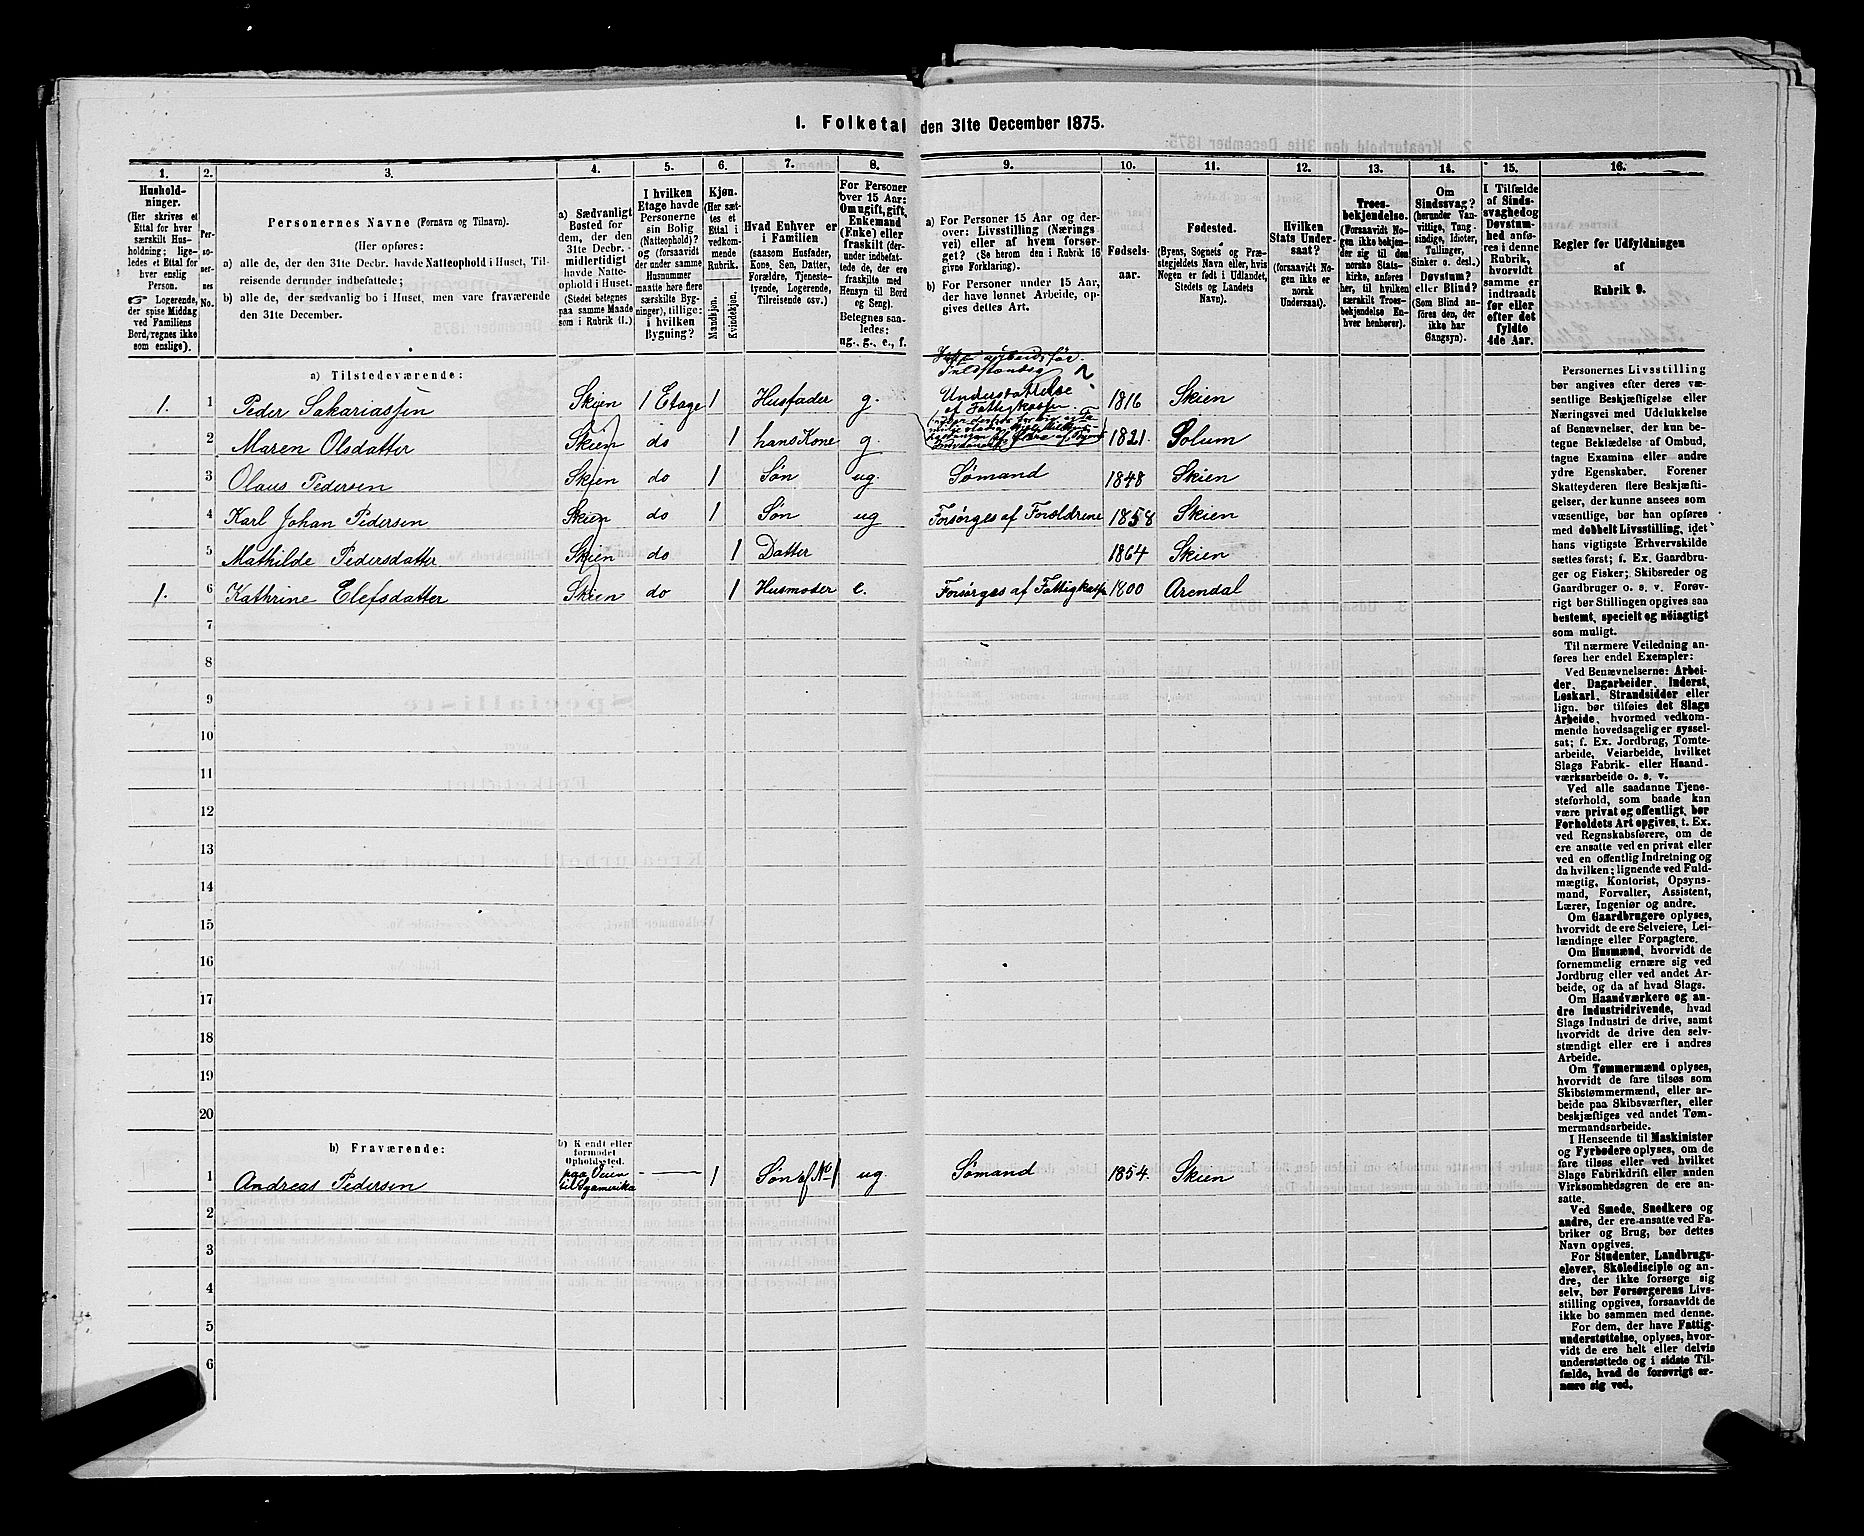 1. Folketal den 31te December 1875.
1. 2. 3. 4. 5. 6. 7. 8. 9. 10. 11. 12. 13. 14. 15. 16.
Hushold-
ninger.
(Her skrives et
Ettal for hver
særskilt Hus-
holdning; lige-
ledes et Ettal for
hver enslig
Person.
☞ Logerende,
der spise Middag
ved Familiens
Bord, regnes ikke
som enslige).
Per-
so-
ner-
nes
No.
Personernes Navne (Fornavn og Tilnavn).
(Her opføres:
a) alle de, der den 31te Decbr. havde Natteophold i Huset, Til-
reisende derunder indbefattede;
b) alle de, der sædvanlig bo i Huset, men vare fraværende
den 31te December.
a) Sædvanligt
Bosted for
dem, der den
31te Decbr.
midlertidigt
havde Natte-
ophold i Huset.
(Stedet betegnes
paa samme Maade
som i Rubrik 11.)
I hvilken
Etage havde
Personerne
sin Bolig
(Natteophold)?
og (forsaavidt
der under samme
Husnummer
maatte høre flere
særskilte Byg-
ninger), tillige:
i hvilken
Bygning?
Kjøn.
(Her sæt-
tes et
Ettal i
vedkom-
mende
Rubrik.
Mandkjøn.
Kvindekjøn.
Hvad Enhver er
i Familien
(saasom Husfader,
Kone, Søn, Datter,
Forældre, Tjeneste-
tyende, Logerende,
Tilreisende osv.)
For Personer
over 15 Aar:
Om ugift, gift,
Enkemand
(Enke) eller
fraskilt (der-
under indbefat-
tede de, der ere
fraskilte med
Hensyn til Bord
og Seng).
Betegnes saa-
ledes:
ug., g., e., f.
a) For Personer 15 Aar og der-
over: Livsstilling (Nærings-
vei) eller af hvem forsør-
get? (Se herom den i Rubrik 16
givne Forklaring).
b) For Personer under 15 Aar,
der have lønnet Arbeide, op-
gives dettes Art.
Fødsels-
aar.
Fødested.
(Byens, Sognets og Præ-
stegjeldets Navn eller, hvis
Nogen er født i Udlandet,
Stedets og Landets
Navn).
Hvilken
Stats Under-
saat?
(forsaavidt No-
gen ikke er
norsk
Undersaat).
Troes-
bekjendelse.
(Forsaavidt No-
gen ikke bekjen-
der sig til den
norske Stats-
kirke, anføres
her, til hvilken
særskilt Troes-
bekjendelse En-
hver henhører).
Om
Sindssvag?
(herunder Van-
vittige, Tung-
sindige, Idioter,
Tullinger,
Sinker o. desl.)
Døvstum?
eller Blind?
(Som Blind an-
føres den, der
ikke har
Gangsyn).
I Tilfælde
af Sinds-
svaghed og
Døvstum-
hed anfø-
res i denne
Rubrik,
hvorvidt
samme er
indtraadt
før eller
efter det
fyldte
4de Aar.
Regler for Udfyldningen
af
Rubrik 9.
a) Tilstedeværende:
1. 1 Peder Sakariassen Skien 1 Etage 1 Husfader g. Understøttelse af Fattigkassen 1816 Skien
2 Maren Olsdatter Skien do 1 hans Kone g. 1821. Solum
3 Olaus Pedersen Skien do 1 Søn ug. Sømand 1848 Skien
4 Karl Johan Pedersen Skien do 1 Søn ug Forsørges af Forældrene 1858 Skien
5 Mathilde Pedersdatter Skien do 1 Datter 1864 Skien
1. 6 Kathrine Elefsdatter Skien do 1 Husmoder e. Forsørges af Fattigkasse 1800 Arendal
7
8
9
10
11
12
13
14
15
16
17
18
19
20
b) Fraværende:
b) Kendt eller
formodet
Opholdssted.
1 Andreas Pedersen paa Veien til 1 Søn af No 1 ug. Sømand 1854. Skien
2
3
4
5
6
Personernes Livsstilling
bør angives efter deres væ-
sentlige Beskjæftigelse eller
Næringsvei med Udelukkelse
af Benævnelser, der kun be-
tegne Beklædelse af Ombud,
tagne Examina eller andre
ydre Egenskaber. Forener
Skatteyderen flere Beskjæfti-
gelser, der kunne ansees som
væsentlige, bør han opføres
med dobbelt Livsstilling, idet
hans vigtigste Erhvervskilde
sættes først; f. Ex. Gaardbru-
ger og Fisker; Skibsreder og
Gaardbruger o. s. v. Forøv-
rigt bør Stillingen opgives saa
bestemt, specielt og nøiagtigt
som muligt.
Til nærmere Veiledning an-
føres her endel Exempler:
Ved Benævnelserne: Arbei-
der, Dagarbeider, Inderst,
Løskarl, Strandsidder eller
lign. bør tilføies det Slags
Arbeide, hvormed vedkom-
mende hovedsagelig er syssel-
sat; f. Ex. Jordbrug, Tomte-
arbeide, Veiarbeide, hvilket
Slags Fabrik- eller Haand-
værksarbeide o. s. v.
Ved alle saadanne Tjene-
steforhold, som baade kan
være privat og offentligt, bør
Forholdets Art opgives, t. Ex.
ved Regnskabsførere, om de
ere ansatte ved en privat eller
ved en offentlig Indretning og
da hvilken; lignende ved Fuld-
mægtig, Kontorist, Opsyns-
mand, Forvalter, Assistent,
Lærer, Ingeniør og andre.
Om Gaardbrugere oplyses,
hvorvidt de ere Selveiere, Lei-
lændinge eller Forpagtere.
Om Husmænd, hvorvidt de
fornemmelig ernære sig ved
Jordbrug eller ved andet Ar-
beide, og da af hvad Slags.
Om Haandværkere og an-
dre Industridrivende, hvad
Slags Industri de drive, samt
hvorvidt de drive den selv-
stændigt eller ere i andres
Arbeide.
Om Tømmermænd oplyses,
hvorvidt de fare tilsøs som
Skibstømmermænd, eller ar-
beide paa Skibsværfter, eller
beskjæftiges ved andet Tøm-
mermandsarbeide.
I Henseende til Maskinister
og Fyrbødere oplyses, om de
fare tilsøs eller ved hvilket
Slags Fabrikdrift eller anden
Virksomhedsgren de ere an-
satte.
Ved Smede, Snedkere og
andre, der ere ansatte ved Fa-
briker og Brug, bør dettes
Navn opgives.
For Studenter, Landbrugs-
elever, Skoledisciple og an-
dre, der ikke forsørge sig
selv, bør Forsørgerens Livs-
stilling opgives, forsaavidt de
ikke bo sammen med denne.
For dem, der have Fattig-
understøttelse, oplyses, hvor-
vidt de ere helt eller delvis
understøttede og i sidste Til-
fælde, hvad de forøvrigt er-
nære sig ved.